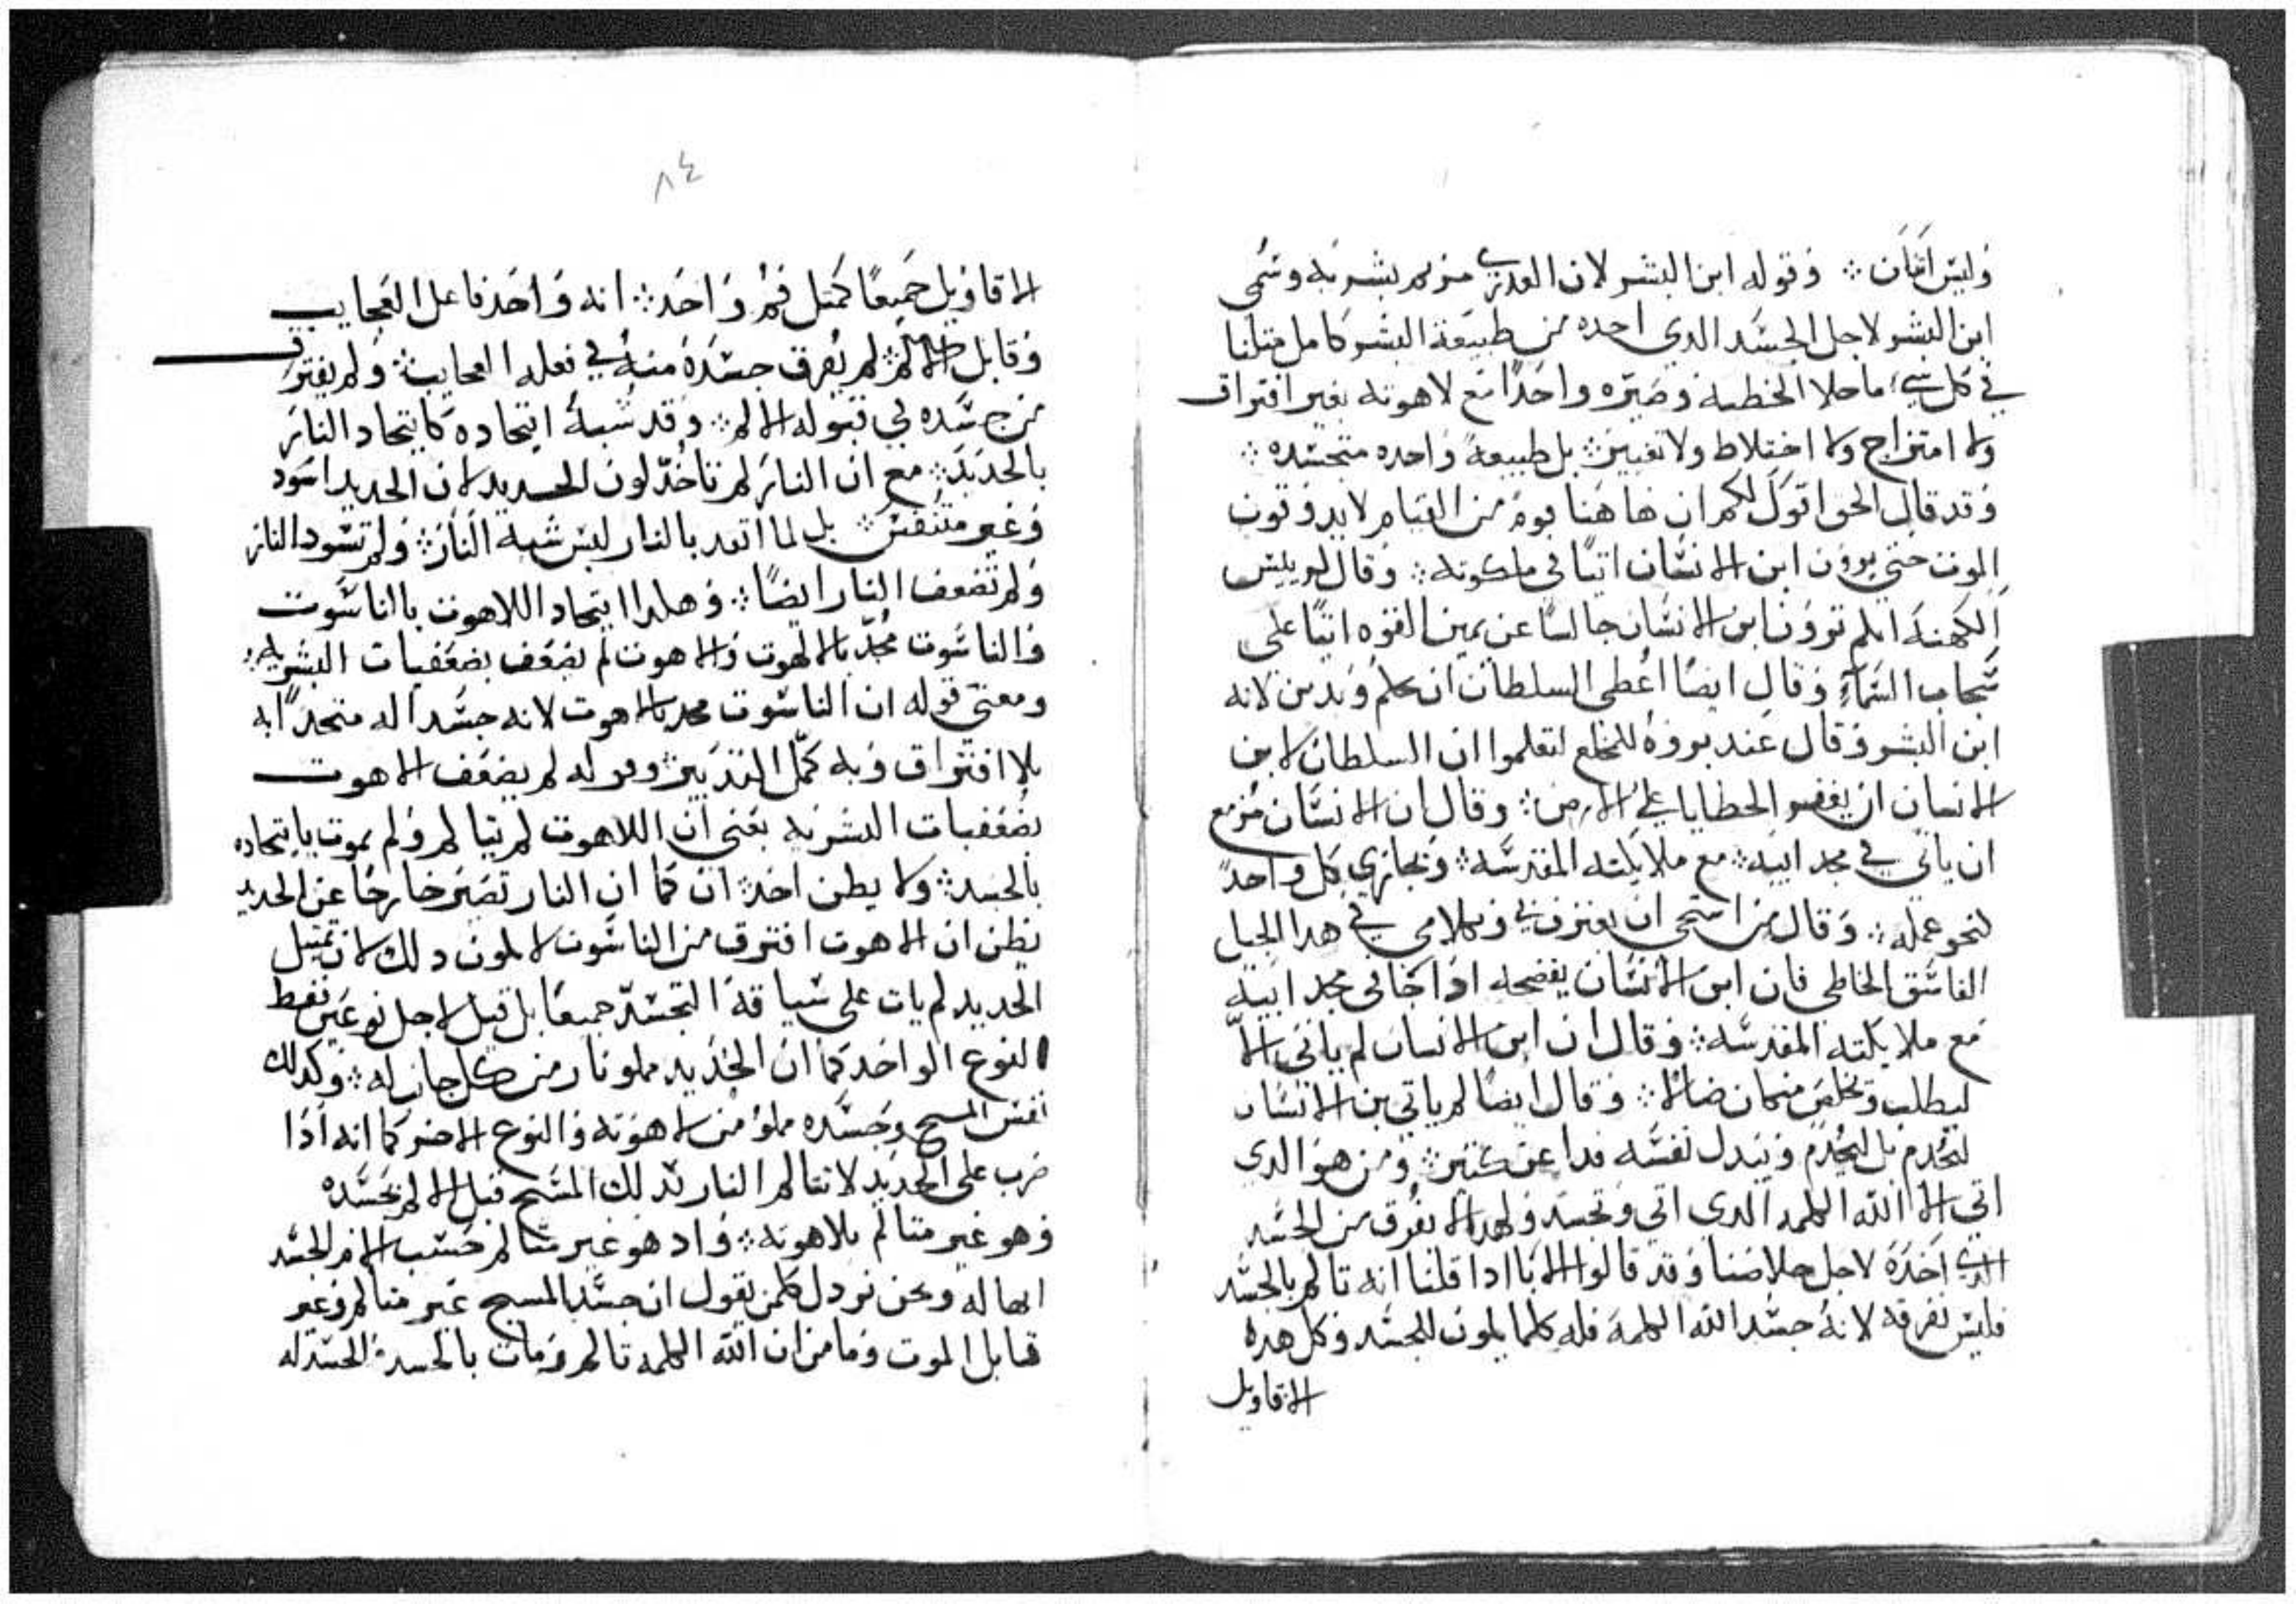 وليس اثنان ۞ وقوله ابن البشر لان العدرى مريم بشريه وسمى
ابن البشر لاجل الجسد الدي احده من طبيعة البشر كامل متلنا
في كل شي ما حلا الخطيه وصيره واحدًا مع لاهوته بغير افتراق
ولا امتزاج ولا اختلاط ولا تغيير ۞ بل طبيعة واحده متجسده ۞
وقد قال الحق اقول لكم ان هاهنا قوم من القيام لا يدوقون
الموت حتى يرون ابن الانسان اتيًا في ملكوته ۞ وقال لريس
الكهنة انكم ترون ابن الانسان جالسًا عن يمين القوه اتيًا على
سحاب السماء وقال ايضًا اعطى السلطان ان يحكم ويدين لانه
ابن البشر وقال عند بروه للمخلع لتعلموا ان السلطان لابن
الانسان ان يغفر الحطايا على الارض ۞ وقال ان الانسان مزمع
ان ياتي في مجد ابيه ۞ مع ملايكته المقدسه ۞ ويجازي كل واحدً
لنحو عمله ۞ وقال من استحى ان يعترف بي وبكلامي في هدا الجيل
الفاسق الخاطي فان ابن الانسان يفضحه ادا جا في مجد ابيه
مع ملايكته المقدسه ۞ وقال ان ابن الانسان لم ياتي الا
ليطلب ويخلص من كان ضالاً ۞ وقال ايضًا لم ياتي بن الانسان
ليُخدم بل ليَخدم ويبدل نفسه فدا عن كتير ۞ ومن هو الدي
اتي الا الله الكلمه الدي اتي وتجسد ولهدا لا يفرق من الجسد
الدي اخده لاجل حلاصنا وقد قالوا الابا ادا قلنا انه تالم بالجسد
فليس نفرقه لانه جسد الله الكلمة فله كلما يكون للجسد وكل هده
الاقاويل
٨٤
الاقاويل جميعًا كمتل فم واحد ۞ انه واحد فاعل العجايب
وقابل الالم ۞ لم يفرق جسده منه في فعله العجايب ۞ ولم يفترق
من جسده في قبوله الالم ۞ وقد شبه اتحاده كاتحاد النار
بالحديد ۞ مع ان النار لم تاخد لون الحديد لان الحديد اسود
وغير متنفس ۞ بل لما اتحد بالنار لبس شبه النار ۞ ولم تسود النار
ولم تضعف النار ايضًا ۞ وهكدا اتحاد اللاهوت بالناسوت
والناسوت مجد بالاهوت والاهوت لم يضعف بضعفيات البشريه ۞
ومعنى قوله ان الناسوت مجد بالاهوت لانه جسد اله متحدًا به
بلا افتراق وبه كمل التدبير ۞ وقوله لم يضعف الاهوت
بضعفيات البشريه يعني ان اللاهوت لم يتالم ولم يموت باتحاده
بالجسد ۞ ولا يظن احد ۞ ان كما ان النار تصير خارجًا عن الحديد
يظن ان الاهوت افترق من الناسوت لا يكون دلك لان تمتيل
الحديد لم يات على سياقة التجسد جميعًا بل قيل لاجل نوعين فقط
النوع الواحد كما ان الحديد مملو نار من كل جانب له ۞ وكدلك
نفس المسيح وجسده مملو من لاهوته والنوع الاخر كما انه ادا
ضرب على الحديد لا تتالم النار كدلك المسيح قبل الالم بجسده
وهو غير متالم بلاهوته ۞ واد هو غير متالم حسب الام الجسد
انها له ونحن نردل كلمن يقول ان جسد المسيح غير متالم وغير
قابل الموت ونامن ان الله الكلمه تالم ومات بالجسد الجسد له